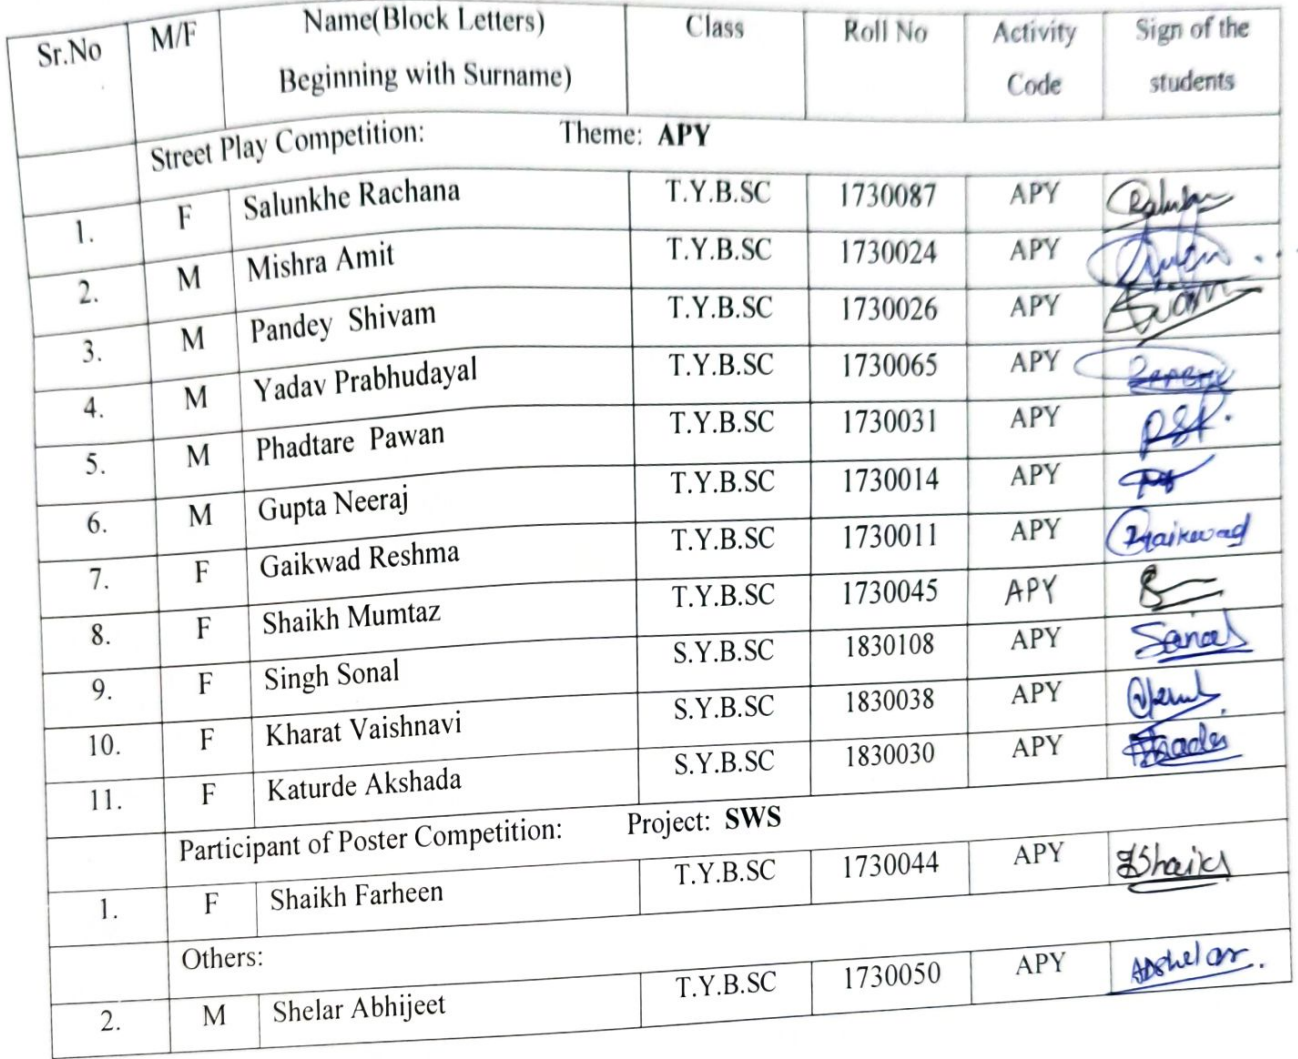 Sr.No M/F Name(Block Letters) Beginning with Surname) Class Roll No Activity Code Sign of the students
Street Play Competition: Theme: APY
1. F Salunkhe Rachana T.Y.B.SC 1730087 APY
2. M Mishra Amit T.Y.B.SC 1730024 APY
3. M Pandey Shivam T.Y.B.SC 1730026 APY
4. M Yadav Prabhudayal T.Y.B.SC 1730065 APY
5. M Phadtare Pawan T.Y.B.SC 1730031 APY
6. M Gupta Neeraj T.Y.B.SC 1730014 APY
7. F Gaikwad Reshma T.Y.B.SC 1730011 APY Gaikwad
8. F Shaikh Mumtaz T.Y.B.SC 1730045 APY
9. F Singh Sonal S.Y.B.SC 1830108 APY Sonal
10. F Kharat Vaishnavi S.Y.B.SC 1830038 APY
11. F Katurde Akshada S.Y.B.SC 1830030 APY
Participant of Poster Competition: Project: SWS
1. F Shaikh Farheen T.Y.B.SC 1730044 APY
Others:
2. M Shelar Abhijeet T.Y.B.SC 1730050 APY